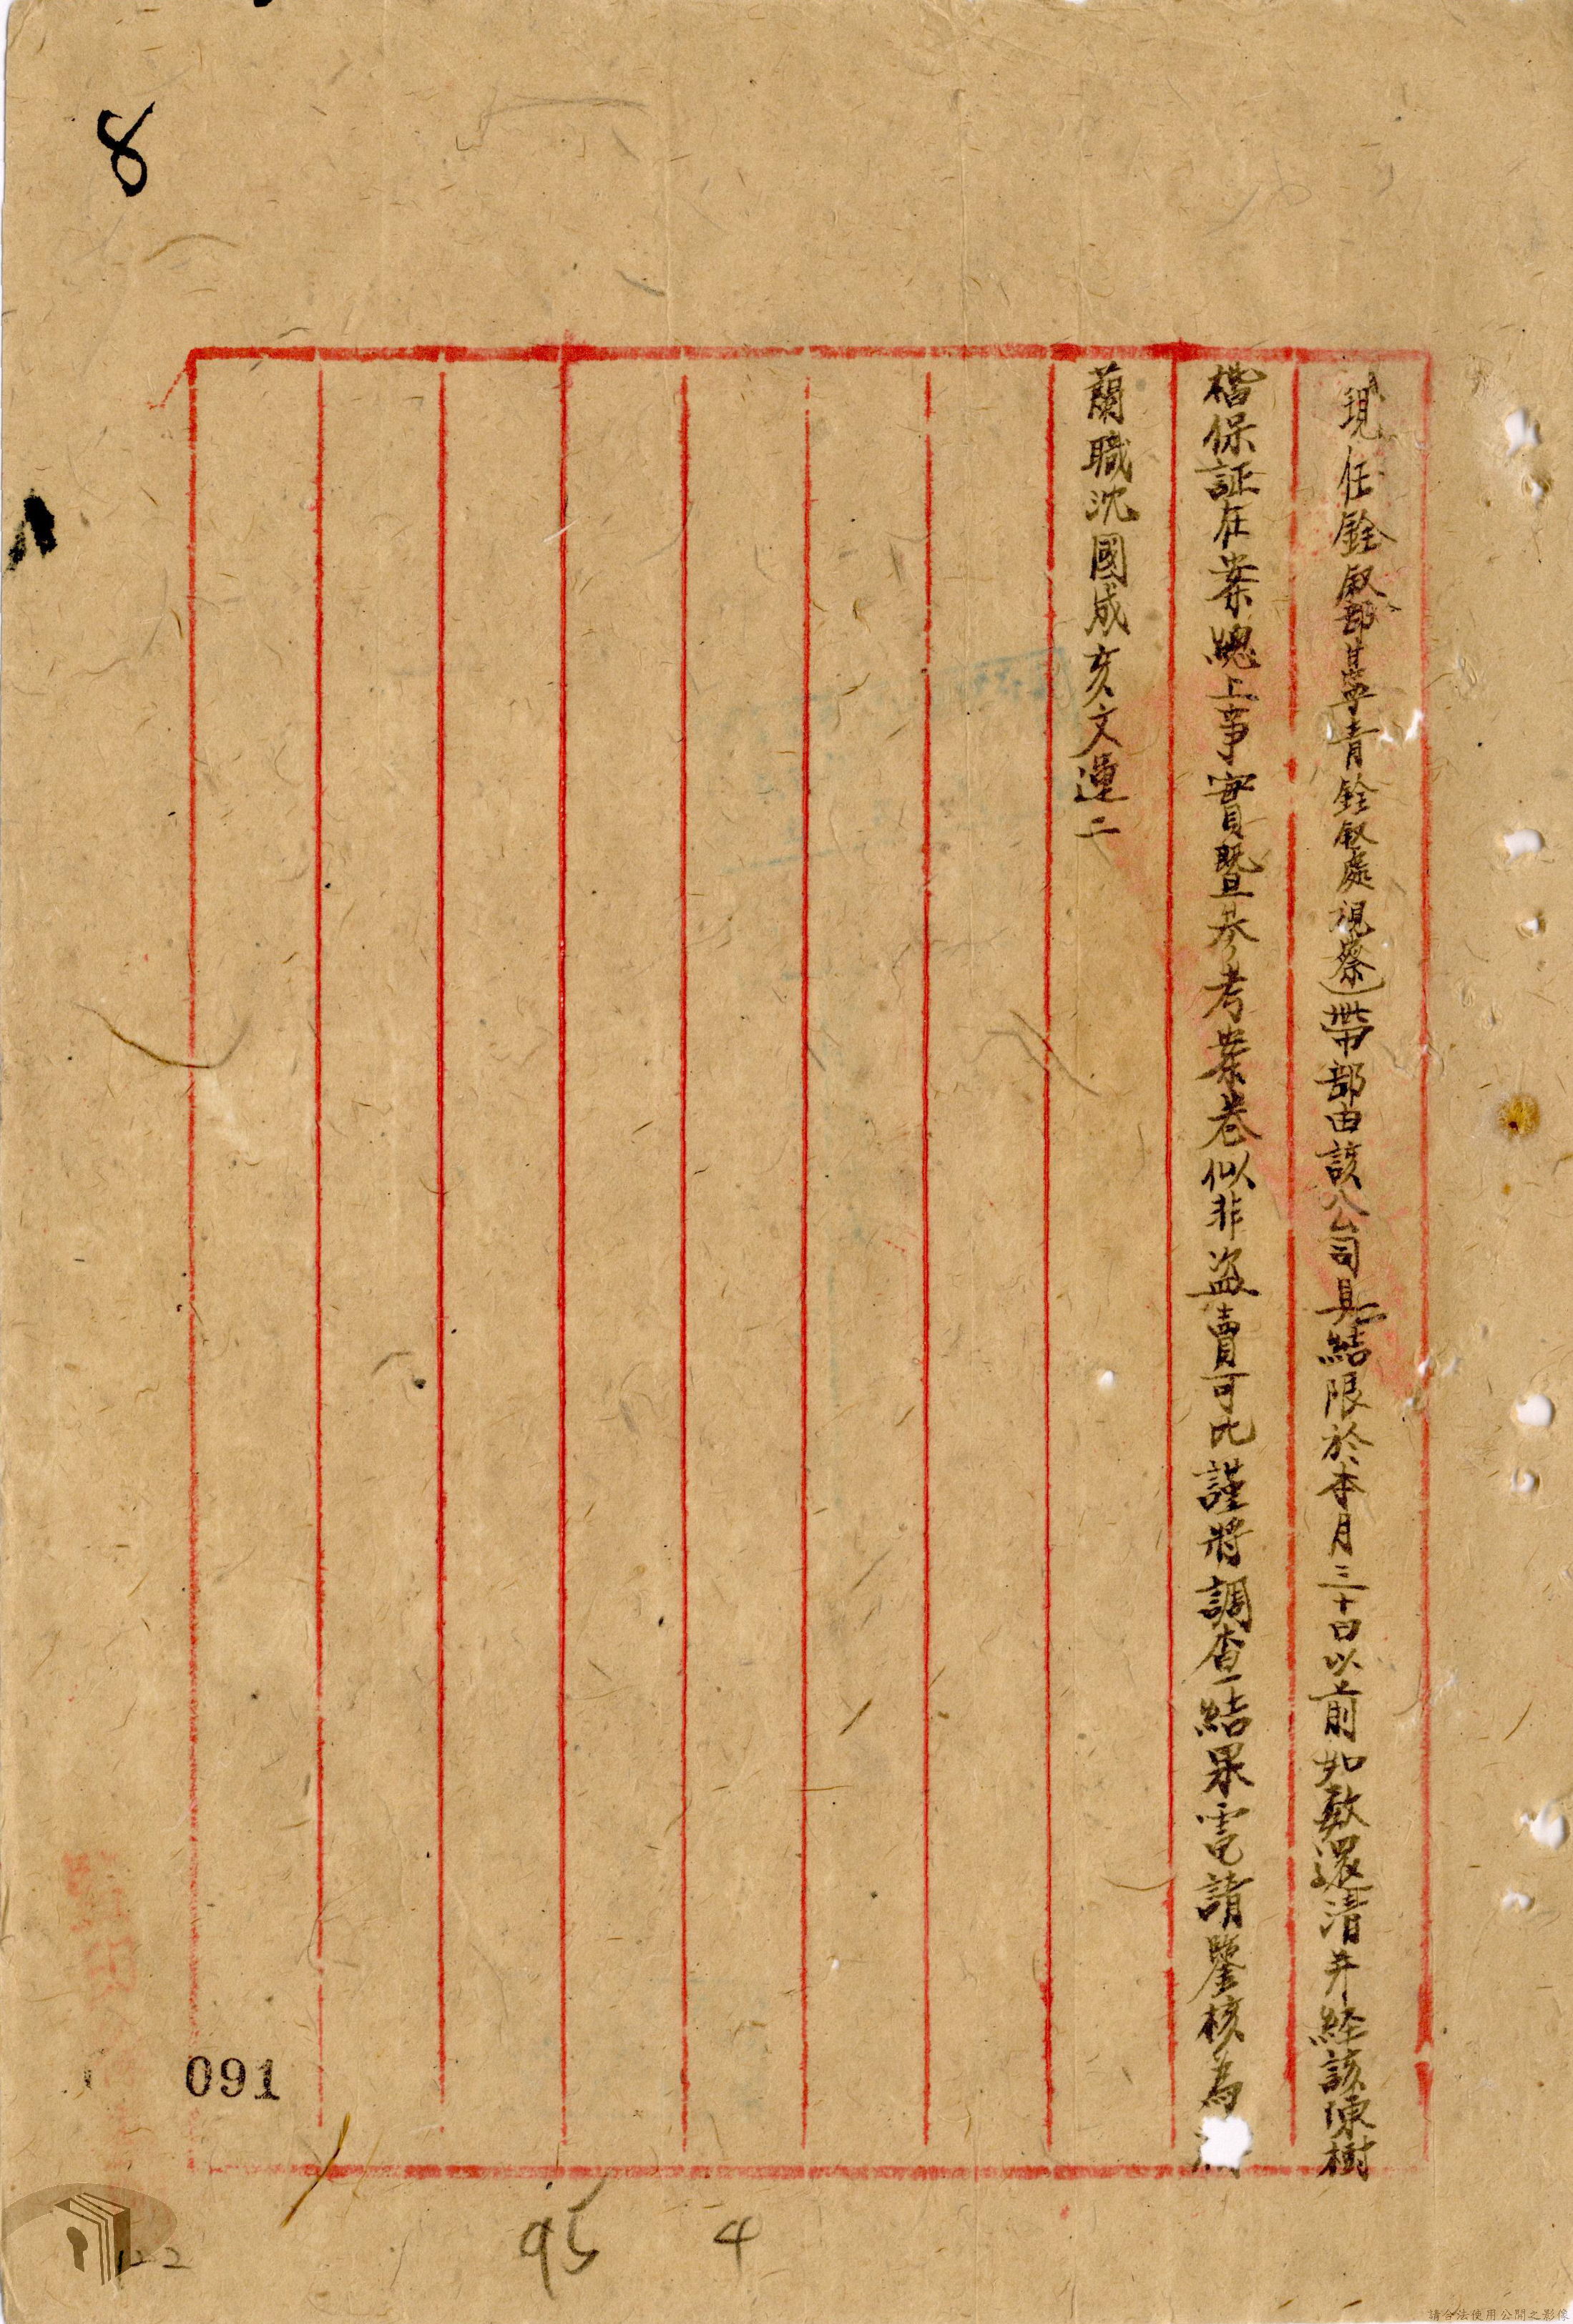 現任銓敘部甘寧青銓敘處視察)帶部由該公司具結限於本月三十日以前如數還清并經該陳樹
楷保証在案總上事實暨參考案卷似非盜賣可比謹將調查結果電請鑒核為
蘭職沈國成亥文運二
8
091
95 4
122
請合法使用公開之影像